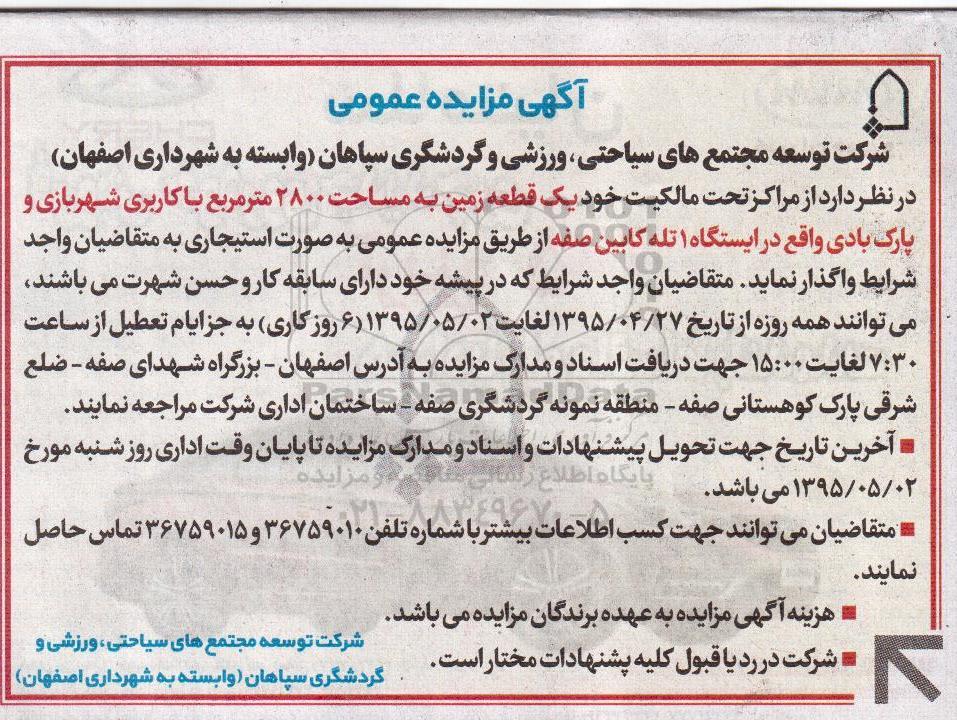 آگهی مزایده عمومی
شرکت توسعه مجتمع های سیاحتی، ورزشی و گردشگری سپاهان (وابسته به شهرداری اصفهان)
در نظر دارد از مراکز تحت مالکیت خود یک قطعه زمین به مساحت ۲۸۰۰ مترمربع با کاربری شهربازی و
پارک بادی واقع در ایستگاه ۱ تله کابین صفه از طریق مزایده عمومی به صورت استیجاری به متقاضیان واجد
شرایط واگذار نماید. متقاضیان واجد شرایط که در پیشه خود دارای سابقه کار و حسن شهرت می باشند،
می توانند همه روزه از تاریخ ۱۳۹۵/۰۴/۲۷ لغایت ۱۳۹۵/۰۵/۰۲ (۶ روز کاری) به جز ایام تعطیل از ساعت
۷:۳۰ لغایت ۱۵:۰۰ جهت دریافت اسناد و مدارک مزایده به آدرس اصفهان - بزرگراه شهدای صفه - ضلع
شرقی پارک کوهستانی صفه - منطقه نمونه گردشگری صفه - ساختمان اداری شرکت مراجعه نمایند.
ParsNamadData
■ آخرین تاریخ جهت تحویل پیشنهادات و اسناد و مدارک مزایده تا پایان وقت اداری روز شنبه مورخ
۱۳۹۵/۰۵/۰۲ می باشد.
پایگاه اطلاع رسانی مناقصه و مزایده
۰۲۱-۸۸۳۴۹۶۷۰-۵
■ متقاضیان می توانند جهت کسب اطلاعات بیشتر با شماره تلفن ۳۶۷۵۹۰۱۰ و ۳۶۷۵۹۰۱۵ تماس حاصل
نمایند.
■ هزینه آگهی مزایده به عهده برندگان مزایده می باشد.
■ شرکت در رد یا قبول کلیه پشنهادات مختار است.
شرکت توسعه مجتمع های سیاحتی، ورزشی و
گردشگری سپاهان (وابسته به شهرداری اصفهان)